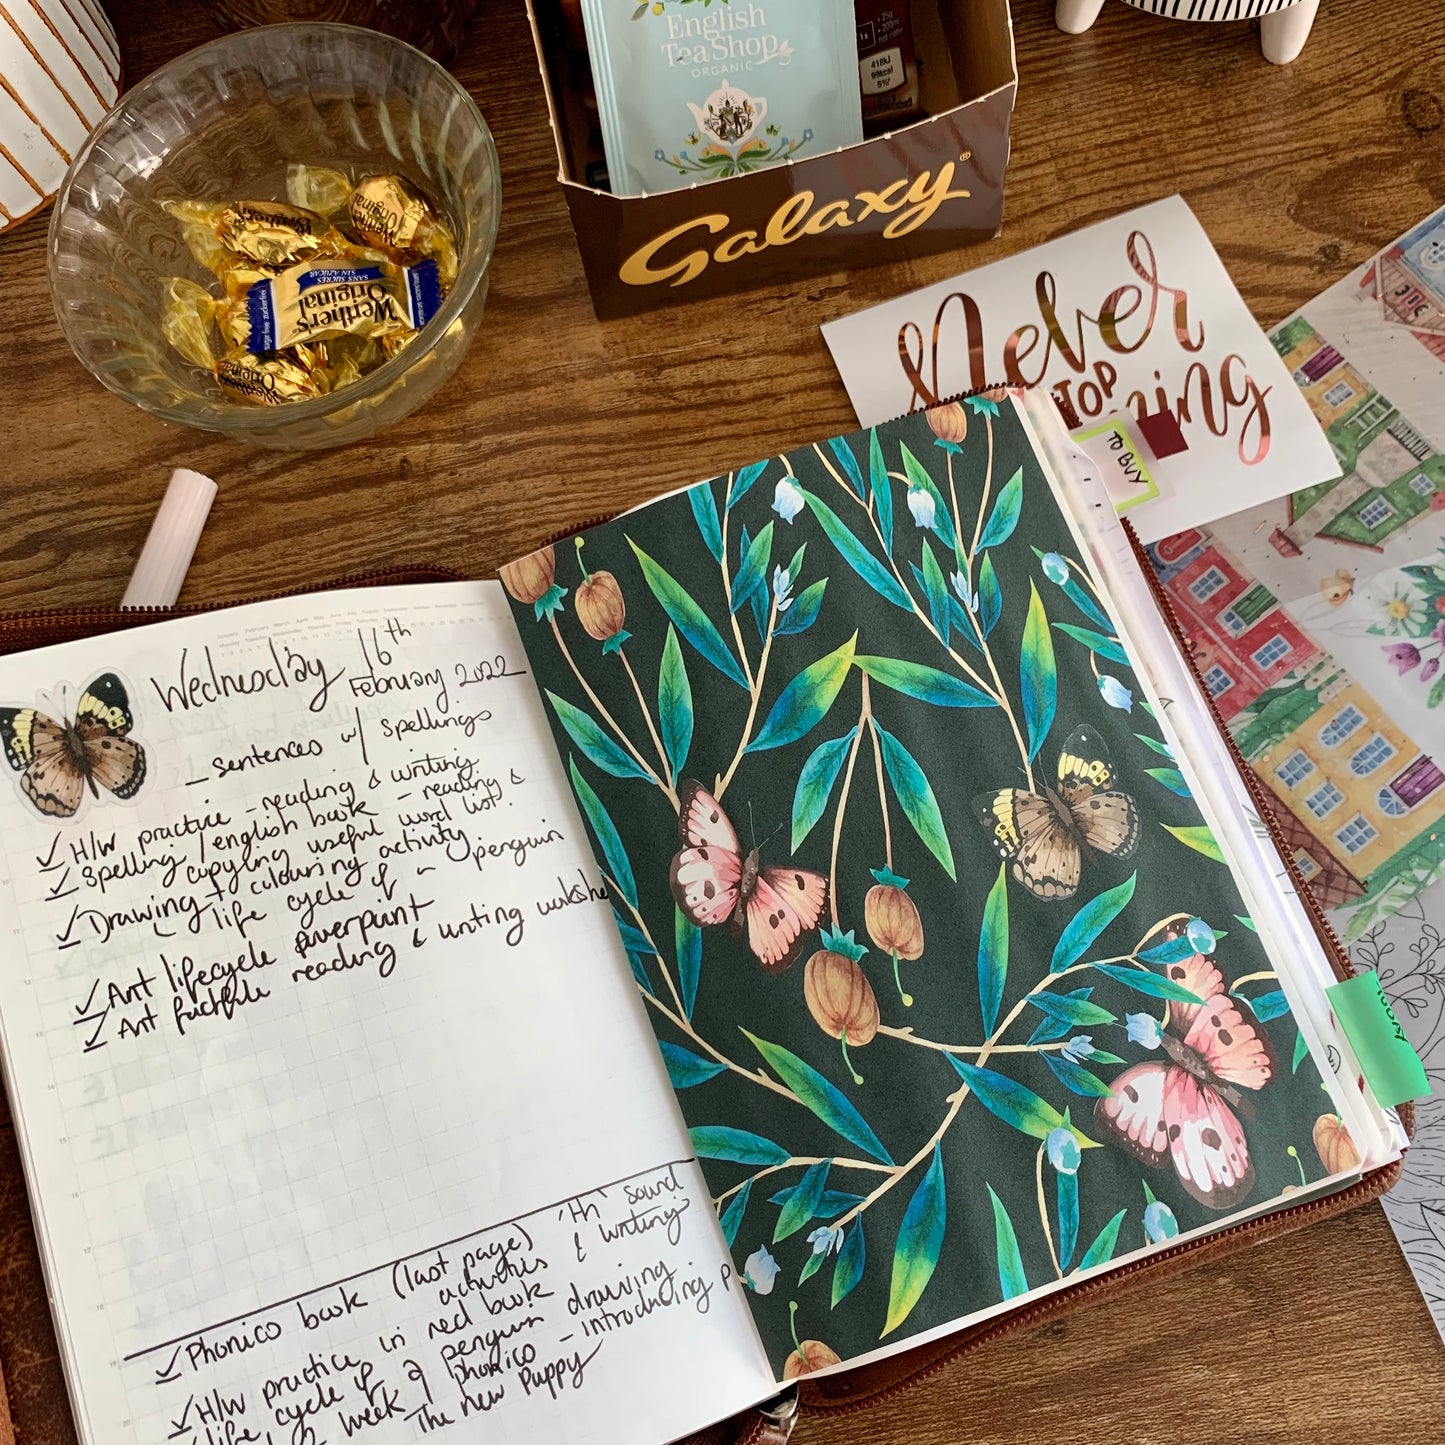 English
Tea Shop
ORGANIC
418kJ
99kcal
5%*
Galaxy®
Werther's
Original
SANS SUCRES
SIN AZÚCAR
sugar free zuckerfrei
Never
TOP
ming
TO BUY
Wednesday 16th
February 2022
- Sentences w/ spellings
✓ H/W practice - reading & writing
✓ Spelling / english book - reading &
copying useful word list.
✓ Drawing + colouring activity
life cycle of a penguin
✓ Ant lifecycle powerpoint
✓ Ant factfile reading & writing workshe
✓ Phonics book (last page) 'th' sound
activities & writing
✓ H/W practice in red book
life cycle of a penguin drawing
week 9 phonics - introducing P
The new Puppy